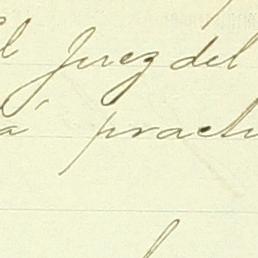 El Juez del
a practi